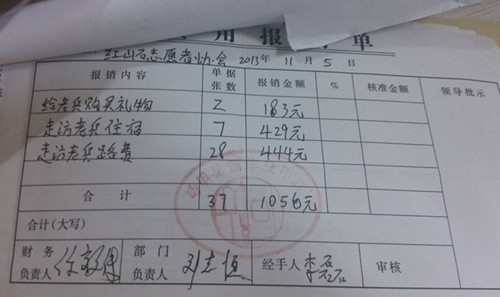 用报 单
红山石志愿者协会 2013年 11月 5日
报销内容 单据张数 报销金额 % 核准金额 领导批示
给老兵购买礼物 2 183元
走访老兵住宿 7 429元
走访老兵路费 28 444元
合计 37 1056元
合计(大写)
财务负责人 部门负责人 刘志恒 经手人 李磊石 审核